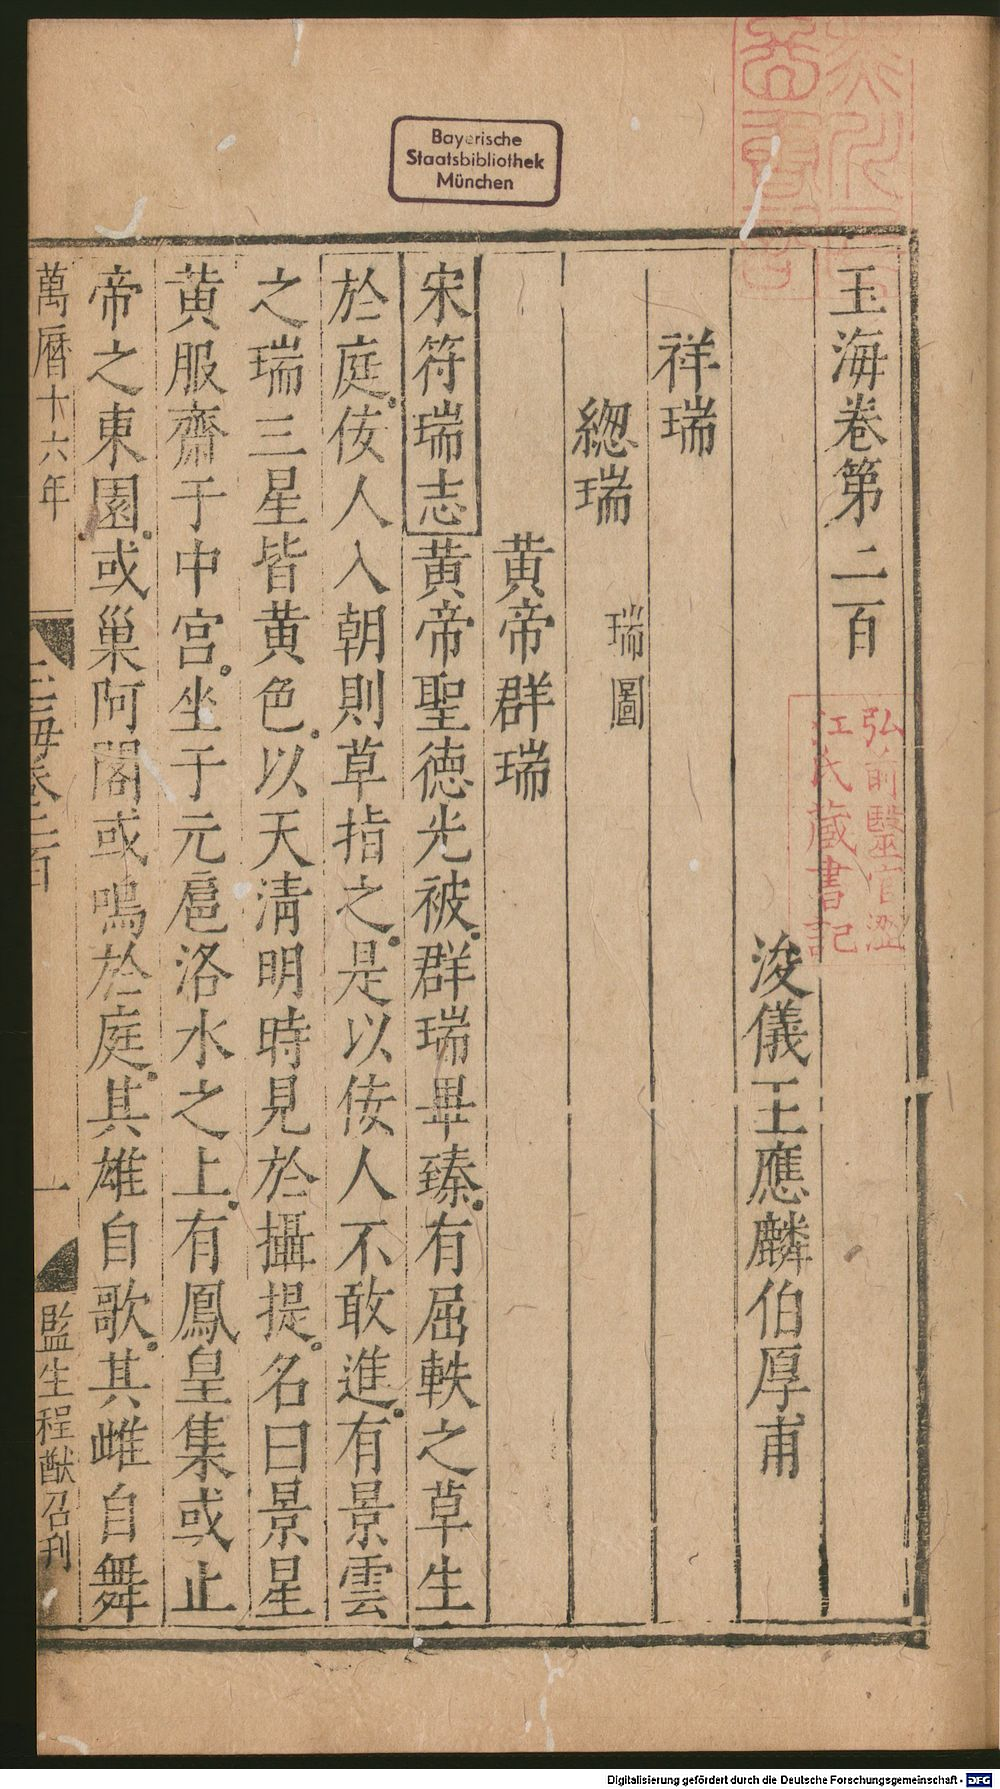 Bayerische
Staatsbibliothek
München
玉海卷第二百
浚儀王應麟伯厚甫
祥瑞
緫瑞　瑞圖
黄帝群瑞
宋符瑞志黄帝聖德光被群瑞畢臻有屈軼之草生
於庭佞人入朝則草指之是以佞人不敢進有景雲
之瑞三星皆黄色以天清明時見於攝提名曰景星
黄服齋于中宫坐于元扈洛水之上有鳳皇集或止
帝之東園或巢阿閣或鳴於庭其雄自歌其雌自舞
萬曆十六年
玉海卷二百
一
監生程猷召刊
弘前醫官澀
江氏藏書記
Digitalisierung gefördert durch die Deutsche Forschungsgemeinschaft - DFG